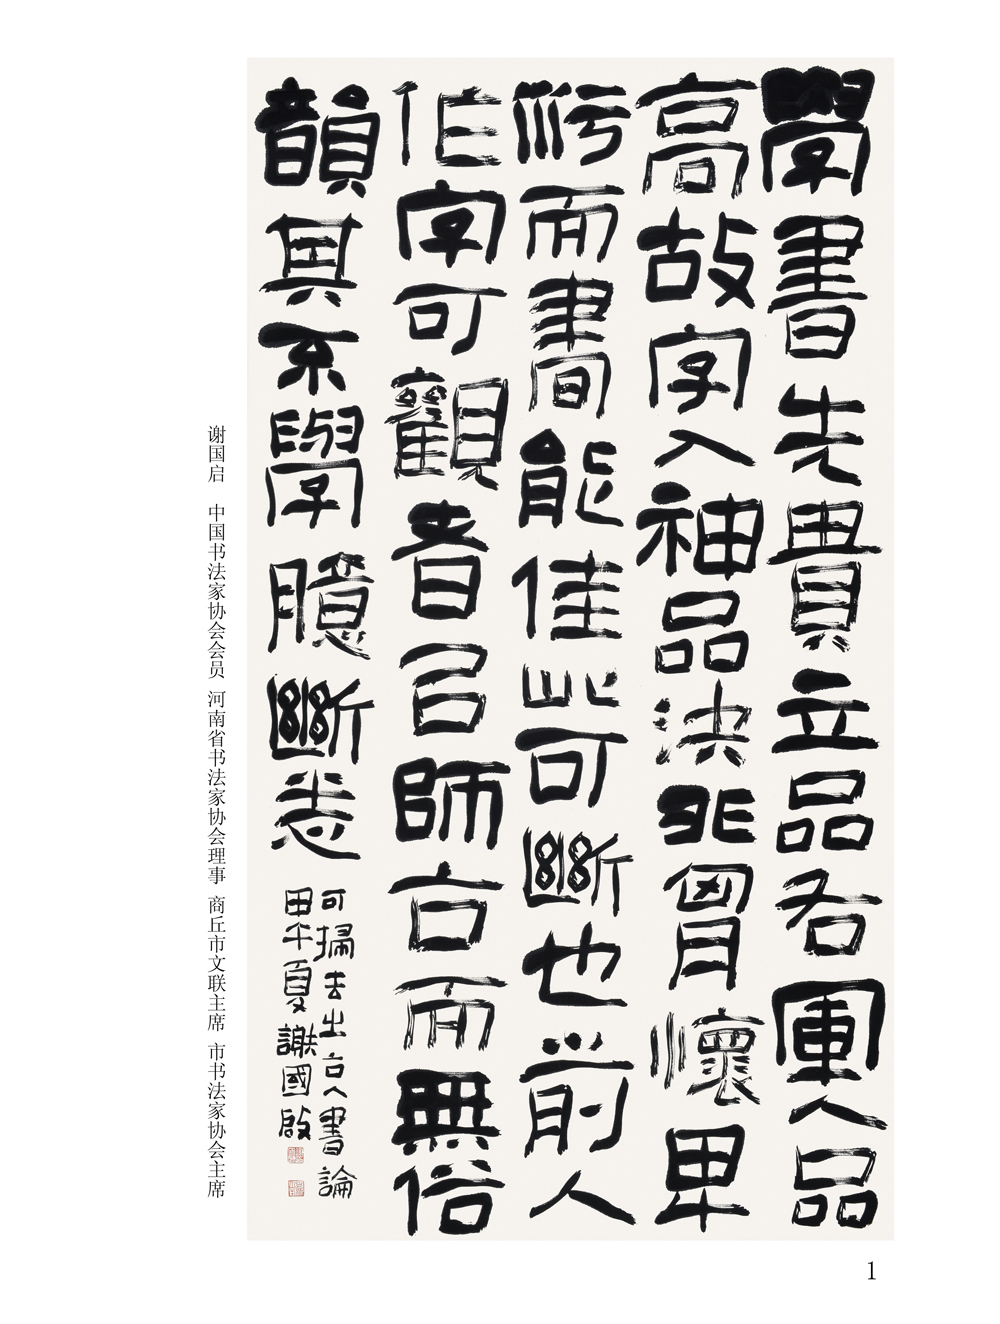 學書先貴立品右軍人品
高故字入神品決非胷懷卑
污而書能佳此可斷也前人
作字可觀者㠯師古而無俗
韻其不學臆斷悉
可掃去之古人書論
甲午夏謝國啟
谢国启 中国书法家协会会员 河南省书法家协会理事 商丘市文联主席 市书法家协会主席
1